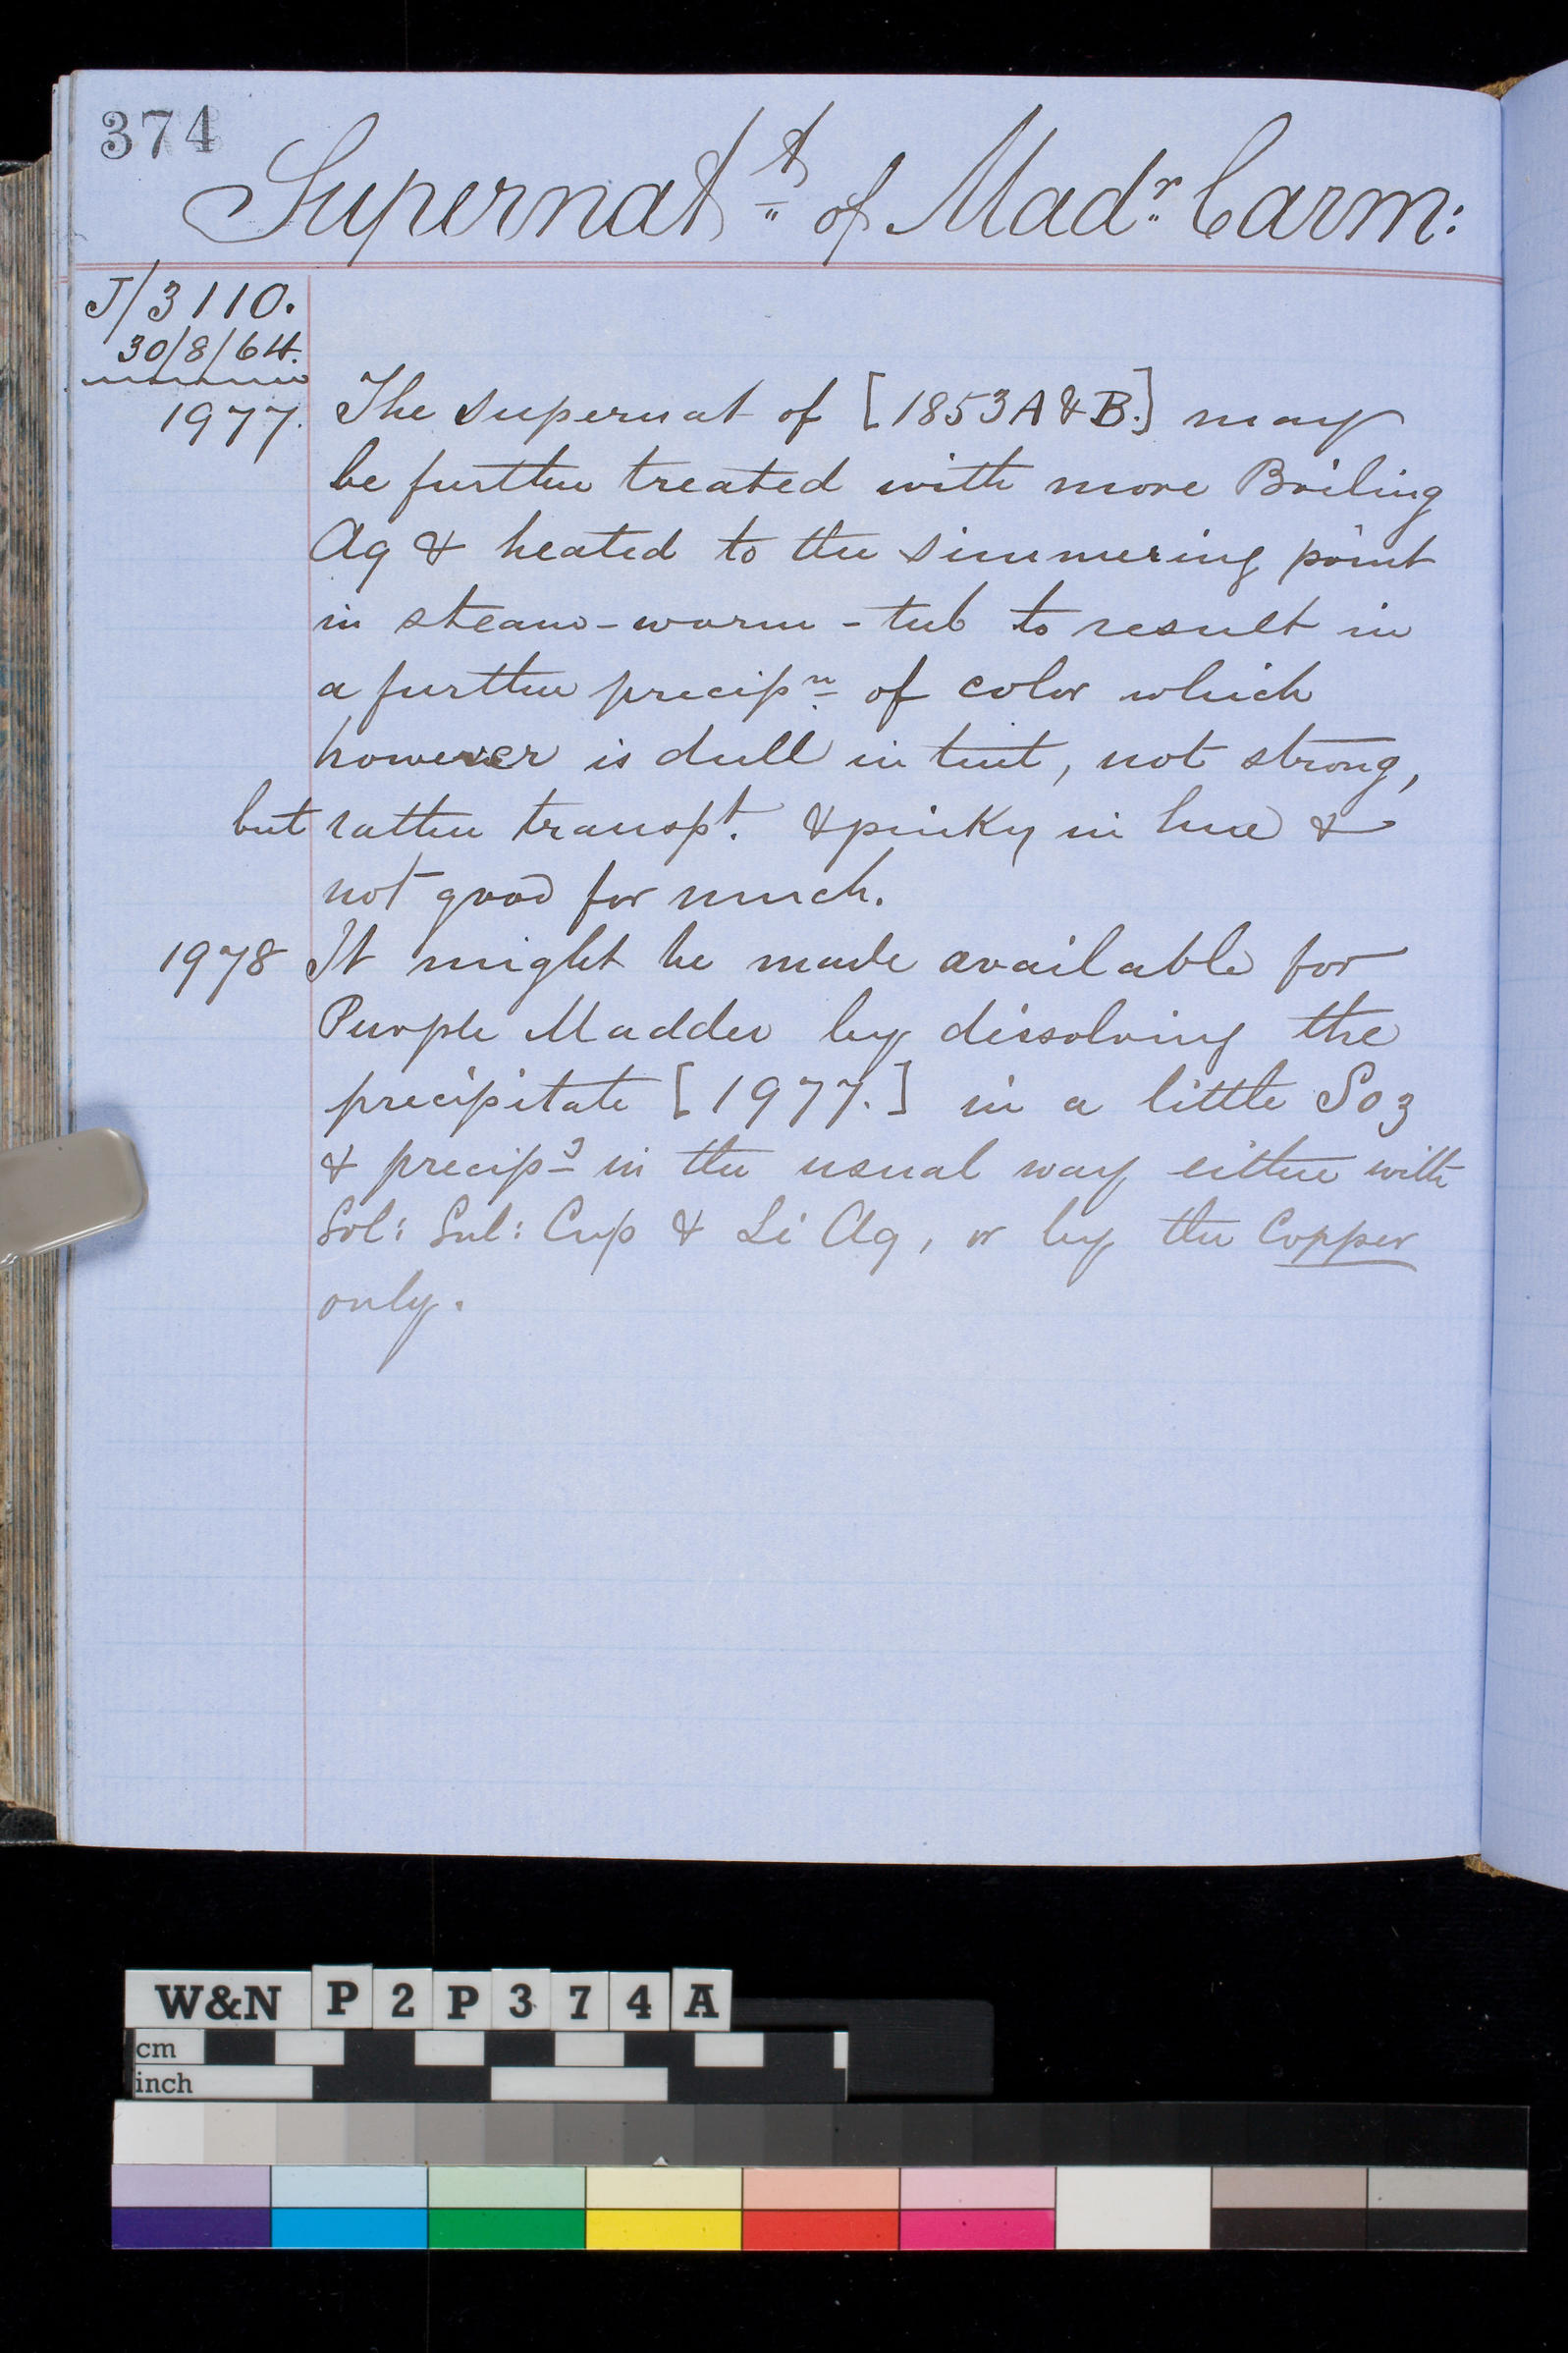 374
Supernatt of Madr Carm:
J/3110.
30/8/64.
1977. The supernat of [1853A & B.] may
be further treated with more Boiling
Aq & heated to the simmering point
in steam-worm-tub to result in
a further precipn of color which
however is dull in tint, not strong,
but rather transpt. & pinky in hue &
not good for much.
1978 It might be made available for
Purple Madder by dissolving the
precipitate [1977.] in a little So3
& precipg in the usual way either with
Sol: Sul: Cup & Li Aq, or by the Copper
only.
W&N P2P374A
cm
inch